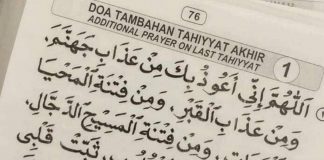 76
DOA TAMBAHAN TAHIYYAT AKHIR
ADDITIONAL PRAYER ON LAST TAHIYYAT
1
اَللّٰهُمَّ إِنِّي أَعُوْذُ بِكَ مِنْ عَذَابِ جَهَنَّمَ،
وَمِنْ عَذَابِ الْقَبْرِ، وَمِنْ فِتْنَةِ الْمَحْيَا
وَمِنْ فِتْنَةِ الْمَسِيْحِ الدَّجَّالِ.
ثَبِّتْ قَلْبِي